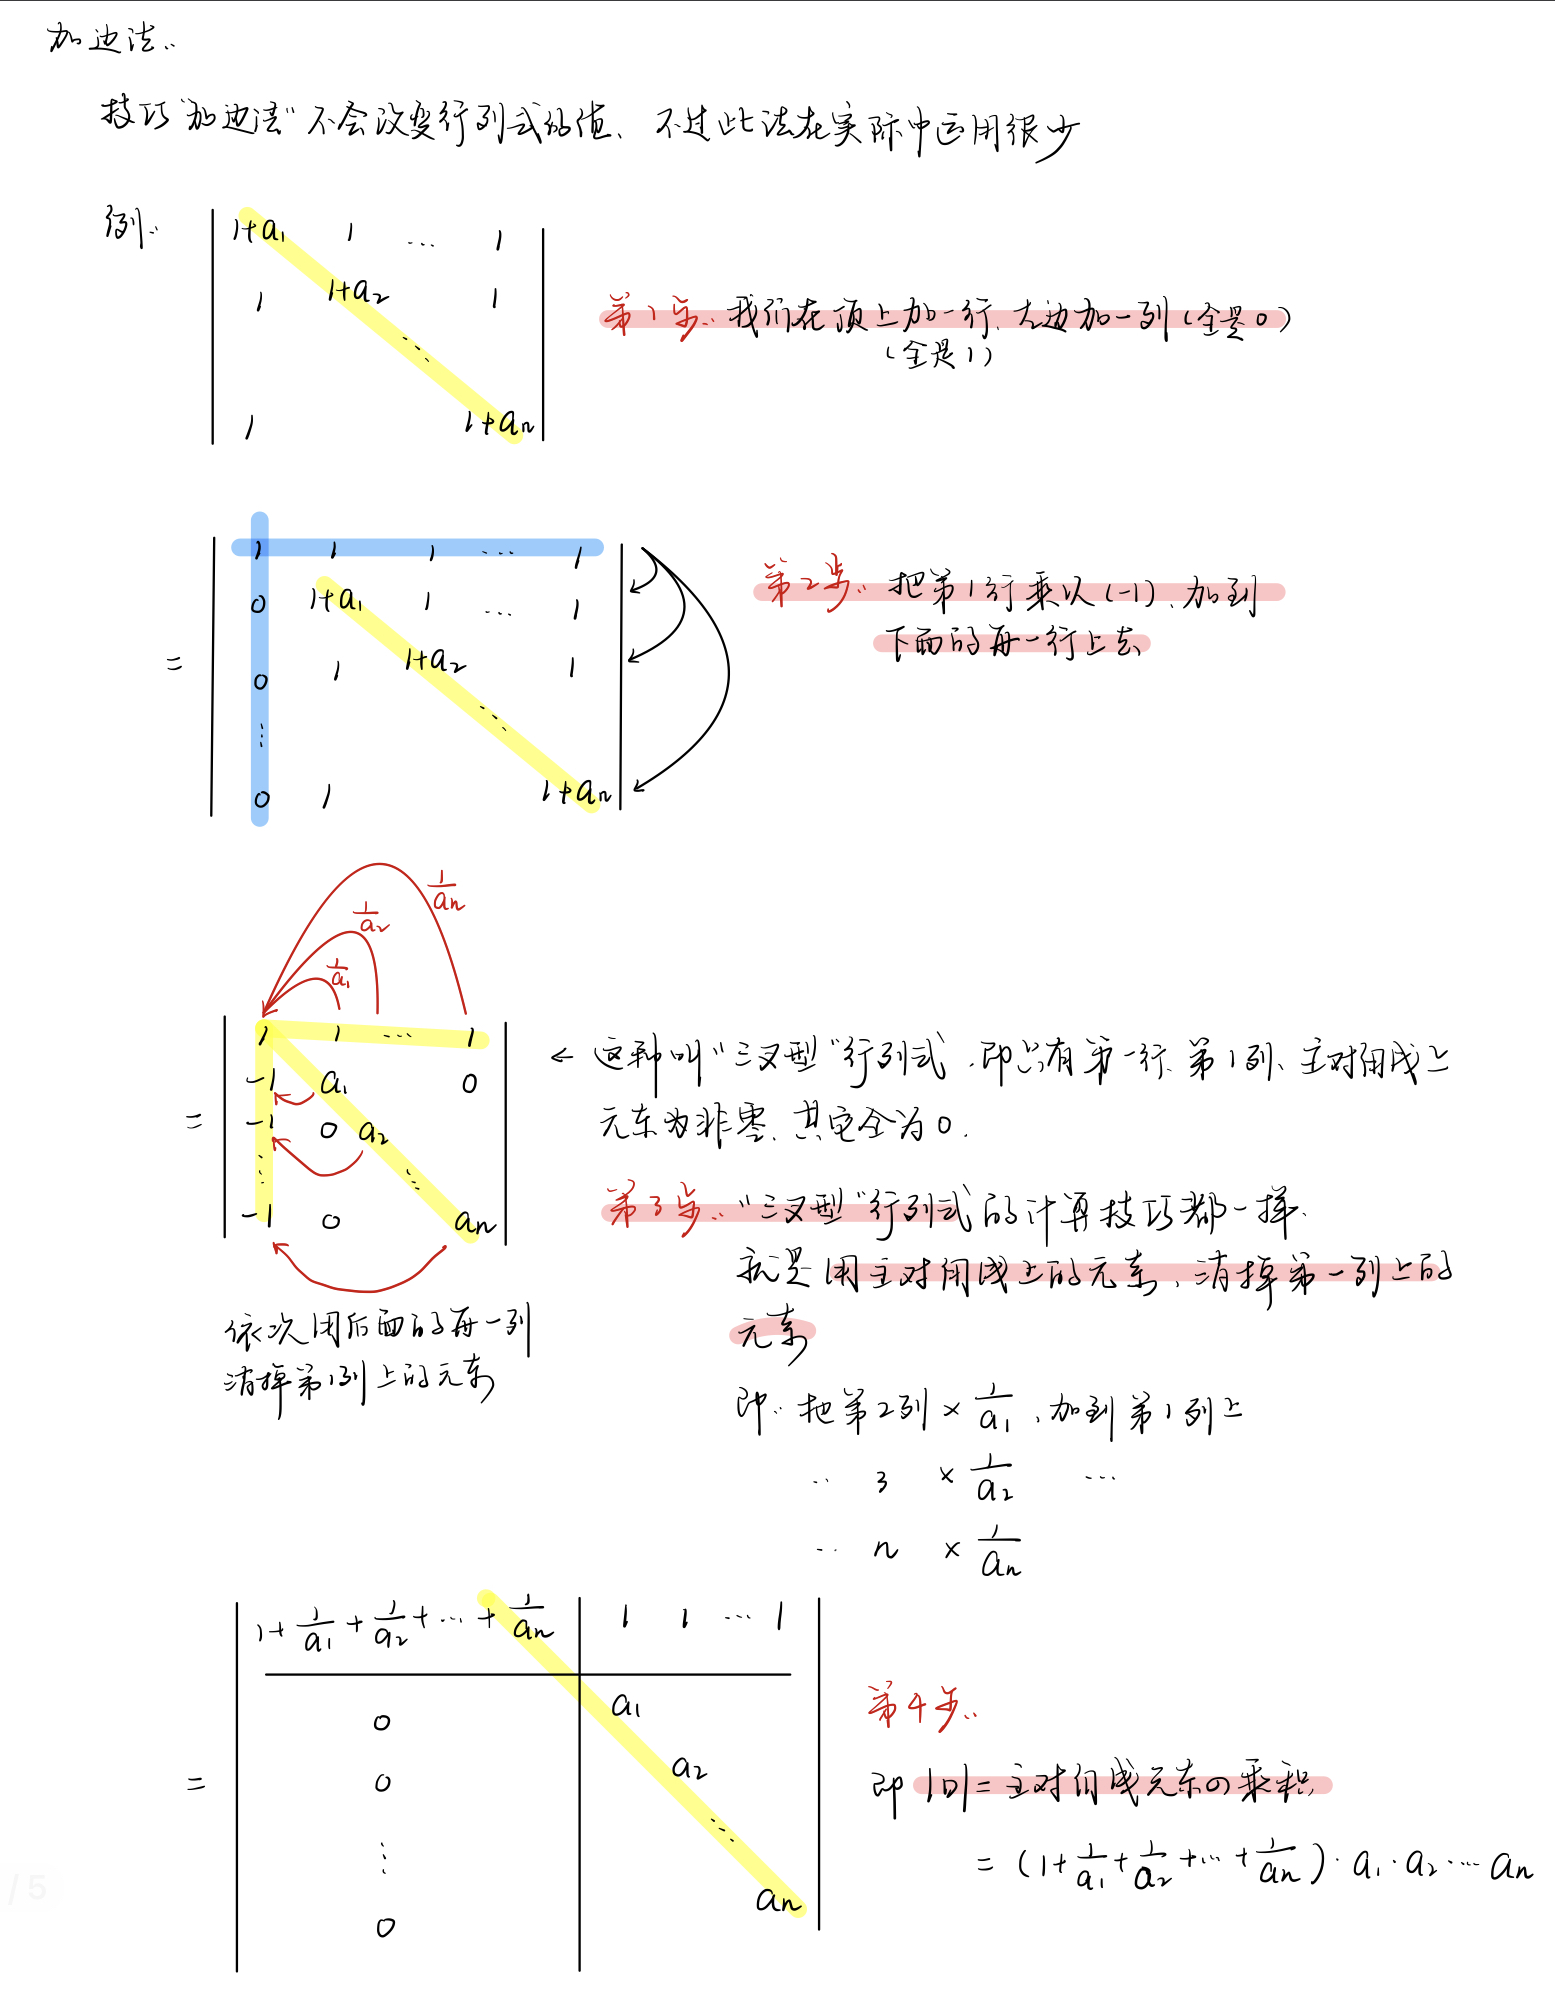 加边法:
技巧“加边法”不会改变行列式的值、不过此法在实际中运用很少
例:
1+a₁ 1 … 1
1 1+a₂ 1
⋱
1 1+aₙ
第1步: 我们在顶上加一行、左边加一列(全是0)
(全是1)
1 1 1 … 1
0 1+a₁ 1 … 1
= 0 1 1+a₂ 1
⋮ ⋱
0 1 1+aₙ
第2步: 把第1行乘以(-1)、加到
下面的每一行上去
1/a₁ 1/a₂ 1/aₙ
1 1 … 1
-1 a₁ 0
= -1 0 a₂
⋮ ⋱
-1 0 aₙ
依次用后面的每一列
消掉第1列上的元素
← 这种叫“三叉型”行列式、即只有第一行、第1列、主对角线上
元素为非零、其它全为0.
第3步: “三叉型”行列式的计算技巧都一样.
就是用主对角线上的元素、消掉第一列上的
元素
即: 把第2列 × 1/a₁、加到第1列上
‥ 3 × 1/a₂ …
‥ n × 1/aₙ
1+1/a₁+1/a₂+…+1/aₙ 1 1 … 1
0 a₁
= 0 a₂
⋮ ⋱
0 aₙ
第4步:
即 |D| = 主对角线元素の乘积
= (1+1/a₁+1/a₂+…+1/aₙ)·a₁·a₂·…aₙ
/ 5